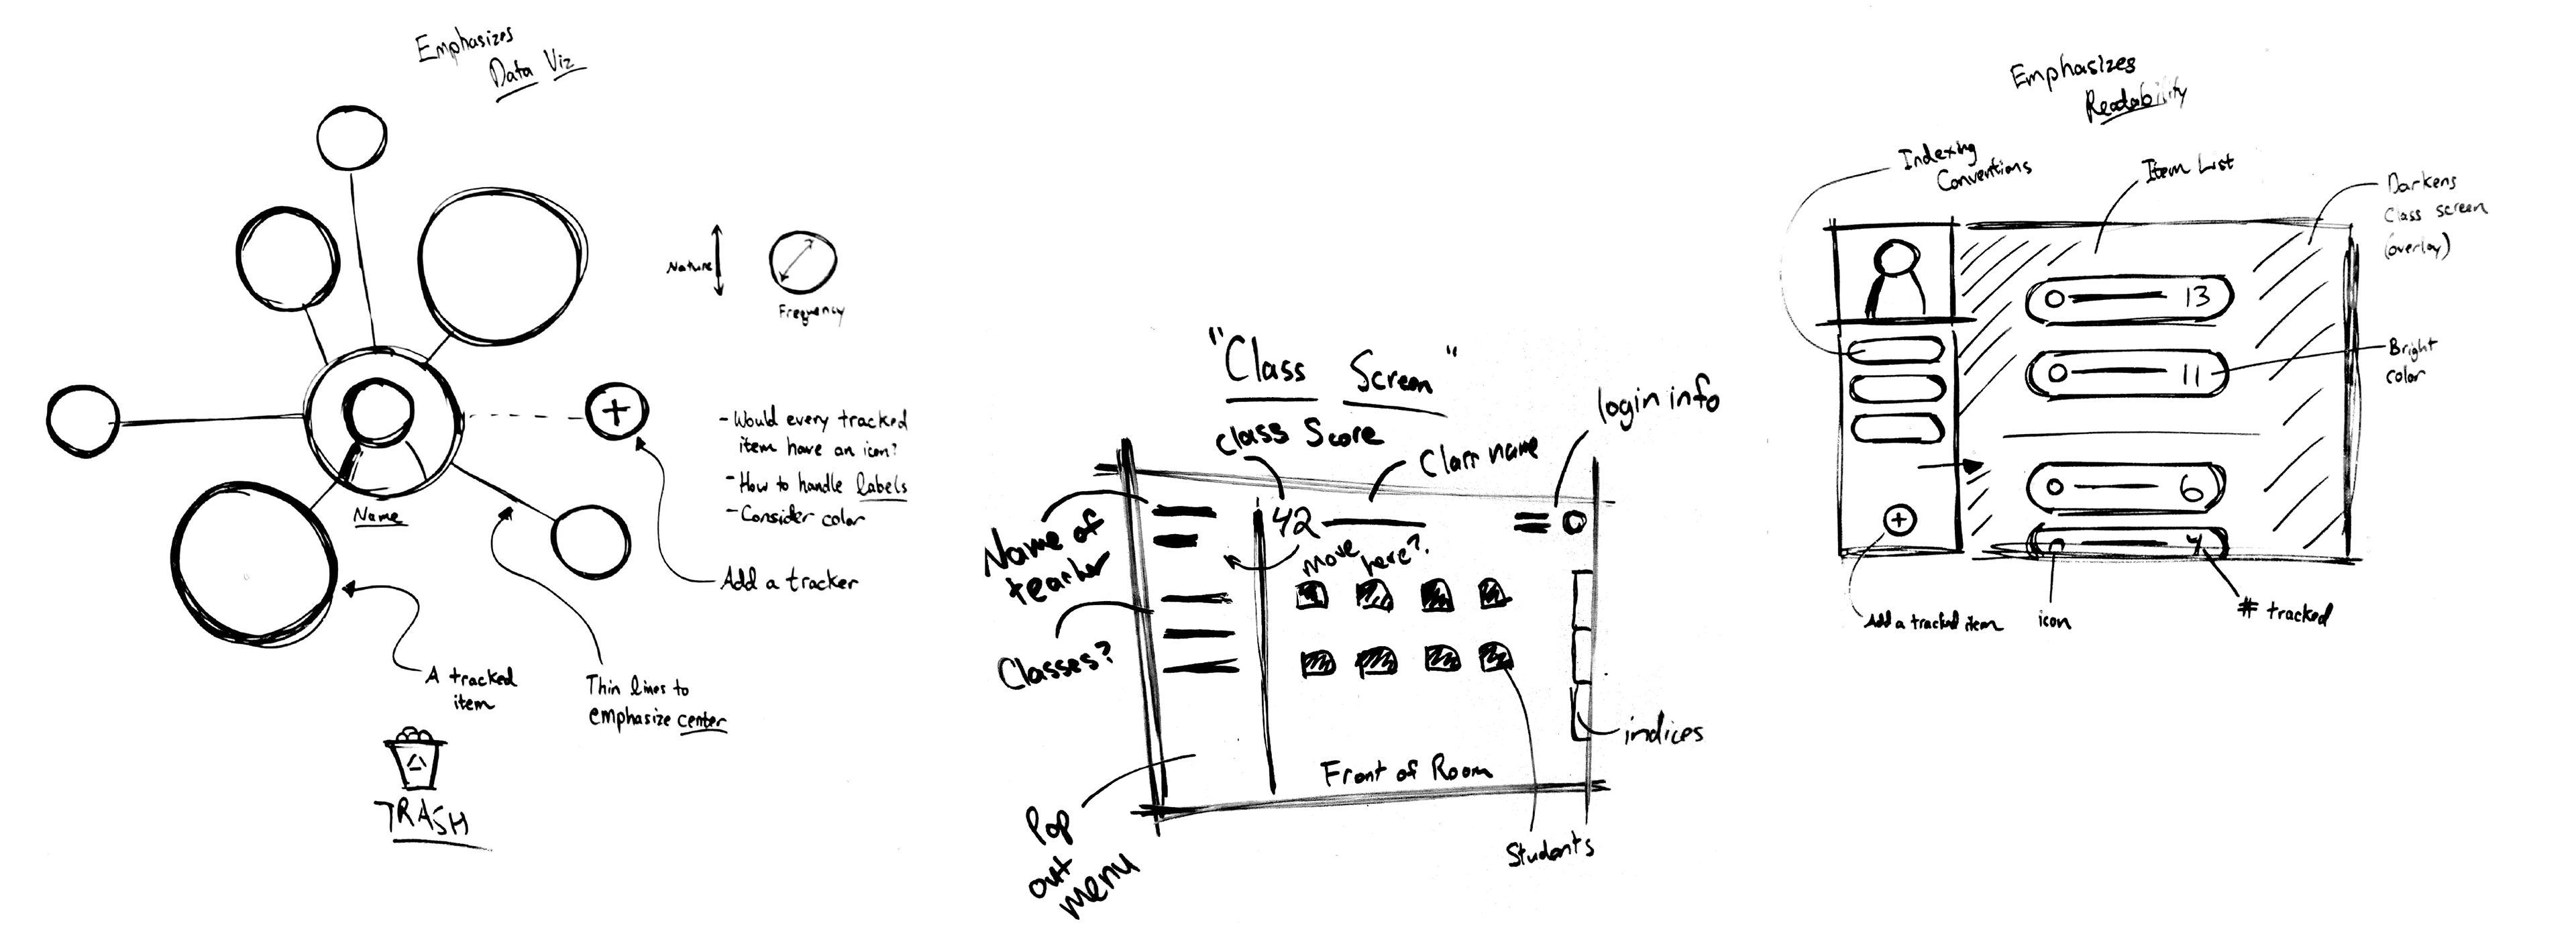 Emphasizes
Data Viz
Nature
Frequency
- Would every tracked
item have an icon?
- How to handle labels
- Consider color
Name
Add a tracker
A tracked
item
Thin lines to
emphasize center
TRASH
"Class Screen"
Class Score
Class name
login info
Name of
teacher
42
move here?
Classes?
indices
Front of Room
Pop
out
menu
Students
Emphasizes
Readability
Indexing
Conventions
Item List
Darkens
Class screen
(overlay)
13
11
Bright
color
6
4
Add a tracked item
icon
# tracked